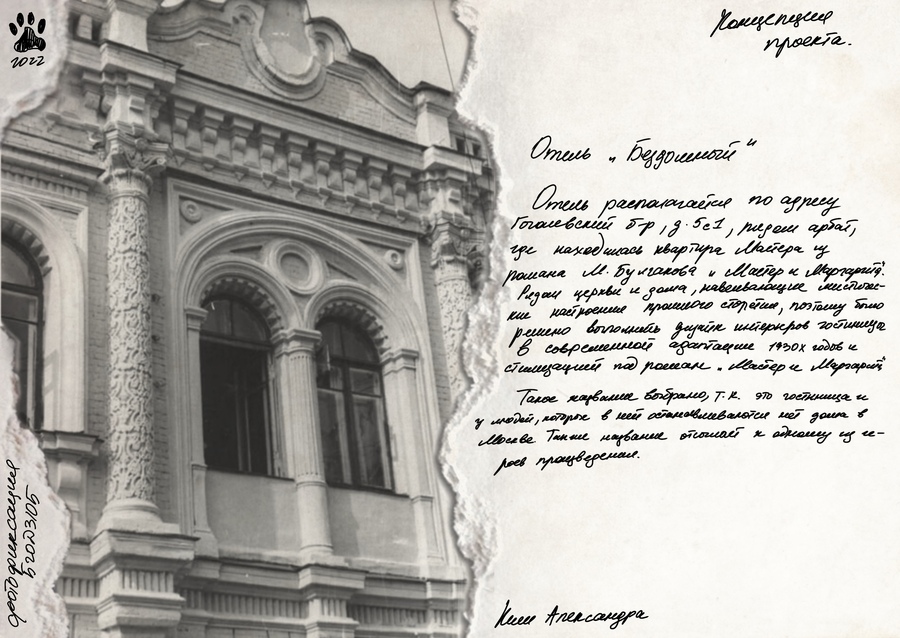 2022
Концепция
проекта.
Отель „Бездомный"
Отель располагается по адресу
Гоголевский б-р, д. 5с1, рядом арбат,
где находилась квартира Мастера из
романа М. Булгакова „Мастер и Маргарита".
Рядом церкви и дома, навеивающие мистичес-
кие настроение прошлого столетия, поэтому было
решено выполнить дизайн интерьеров гостиницы
в современной адаптации 1930х годов и
стилизацией под роман „Мастер и Маргарита"
Такое название выбрано, т.к. это гостиница и
у людей, которые в ней останавливаются нет дома в
Москве Также название отсылает к одному из ге-
роев произведения.
фотофиксация
Ким Александра